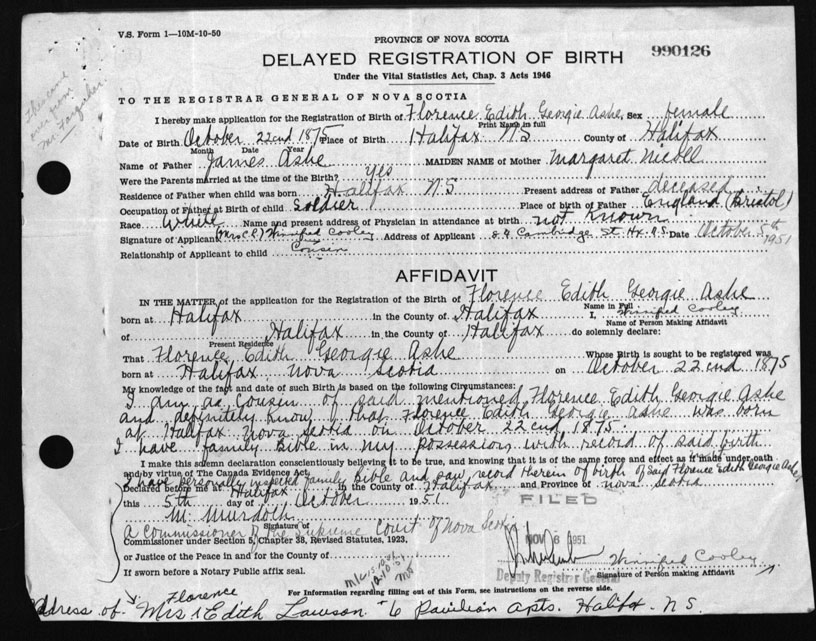 V.S. Form 1—10M-10-50
PROVINCE OF NOVA SCOTIA
DELAYED REGISTRATION OF BIRTH
990126
Under the Vital Statistics Act, Chap. 3 Acts 1946
TO THE REGISTRAR GENERAL OF NOVA SCOTIA
I hereby make application for the Registration of Birth of Florence Edith Georgie Ashe Sex female
Print Name in full
Date of Birth October 22cnd 1875 Place of Birth Halifax NS County of Halifax
Month Date Year
Name of Father James Ashe MAIDEN NAME of Mother Margaret Nicoll
Were the Parents married at the time of the Birth? Yes
Residence of Father when child was born Halifax N S Present address of Father deceased
Occupation of Father at Birth of child Soldier Place of birth of Father England (Bristol)
Race White Name and present address of Physician in attendance at birth not known
Signature of Applicant (Mrs C.) Winnifred Cooley Address of Applicant Cambridge St. Hx. N.S. Date October 5th 1951
Relationship of Applicant to child Cousin
AFFIDAVIT
IN THE MATTER of the application for the Registration of the Birth of Florence Edith Georgie Ashe
Name in Full
born at Halifax in the County of Halifax I, Winnifred Cooley
Name of Person Making Affidavit
of Halifax in the County of Halifax do solemnly declare:
Present Residence
That Florence Edith Georgie Ashe Whose Birth is sought to be registered was
born at Halifax Nova Scotia on October 22cnd 1875
My knowledge of the fact and date of such Birth is based on the following Circumstances:
I am a cousin of said mentioned Florence Edith Georgie Ashe
and definitely know that Florence Edith Georgie Ashe was born
at Halifax Nova Scotia on October 22cnd 1875.
I have family Bible in my possession with record of said birth
I make this solemn declaration conscientiously believing it to be true, and knowing that it is of the same force and effect as if made under oath
and by virtue of The Canada Evidence Act.
I have personally inspected family Bible and saw record therein of birth of said Florence Edith Georgie Ashe
Declared before me at Halifax in the County of Halifax and Province of Nova Scotia
this 5th day of October 1951
FILED
M. Murdoch
Signature of
A Commissioner of the Supreme Court of Nova Scotia
Commissioner under Section 5, Chapter 38, Revised Statutes, 1923,
NOV 6 1951
or Justice of the Peace in and for the County of
Winnifred Cooley
If sworn before a Notary Public affix seal.
Deputy Registrar General
Signature of Person making Affidavit
For Information regarding filling out of this Form, see instructions on the reverse side.
Florence
Address of Mrs Edith Lawson 6 Pavilion Apts. Halifax. N S.